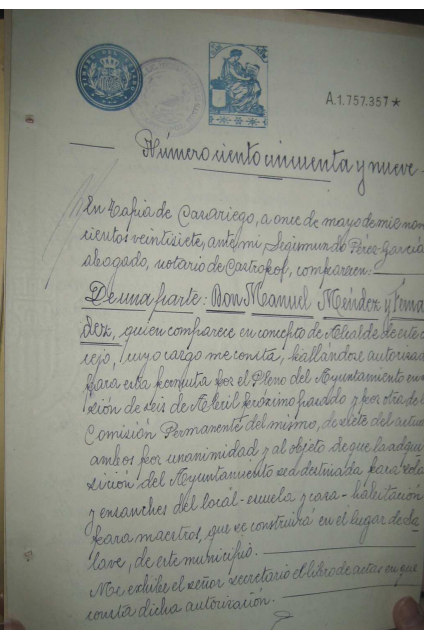 A.1.757.357*
Número ciento cincuenta y nueve
En Tapia de Casariego, a once de mayo de mil nove
cientos veintisiete, ante mí, Segismundo Pérez García
abogado, notario de Castropol, comparecen:
De una parte: Don Manuel Méndez y Fernán
dez, quien comparece en concepto de Alcalde de este con
cejo, cuyo cargo me consta, hallándose autorizado
para esta permuta por el Pleno del Ayuntamiento en se
sión de seis de Abril próximo pasado y por otra de la
Comisión Permanente del mismo, de siete del actual
ambos por unanimidad y al objeto de que la adqui
sición del Ayuntamiento sea destinada para solar
y ensanches del local-escuela y casa-habitación
para maestros, que se construirá en el lugar de Sa
lave, de este municipio.
Me exhibe el señor secretario el libro de actas en que
consta dicha autorización.